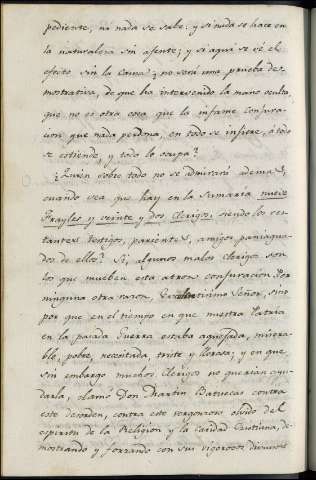 pediente, na nada se sabe: y si nada se hace en
la naturaleza sin agente; y si aqui se vé el
efecto sin la causa ¿no será una prueba de=
mostrativa, de que ha intervenido la mano oculta,
que no es otra cosa que la infame conjura-
cion que nada perdona, en todo se infiere, á todo
se estiende, y todo lo ocupa?
¿Quien sobre todo no se admirará ademas,
cuando vea que hay en la Sumaria nueve
Frayles y veinte y dos Clerigos, siendo los res-
tantes testigos, parientes, amigos paniagua-
dos de ellos? Si, algunos malos clerigos son
los que mueben esta atroz conjuracion. Por
ninguna otra razon, Excelentisimo Señor, sino
por que en el tiempo en que nuestra Patria
en la pasada Guerra estaba aquejada, misera-
ble, pobre, necesitada, triste y llorosa; y en que,
sin embargo muchos Clerigos no querian ayu-
darla, clamó Don Martin Batuecas contra
este desorden, contra este vergonzoso olvido del
espiritu de la Religion y la caridad Cristiana, de-
mostrando y forzando con sus vigorosos discursos